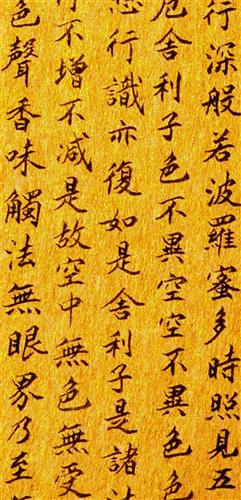 行深般若波羅蜜多時照見五
厄舍利子色不異空空不異色色
行識亦復如是舍利子是諸法
不增不减是故空中無色無受
色聲香味觸法無眼界乃至無